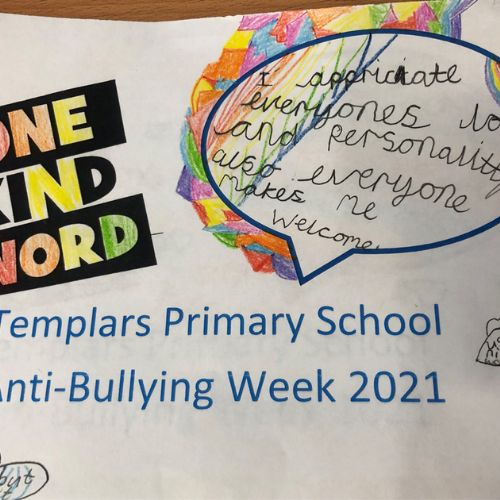 ONE
KIND
WORD
I appriciate
everyones
and personality
also everyone
makes me
welcome
Templars Primary School
Anti-Bullying Week 2021